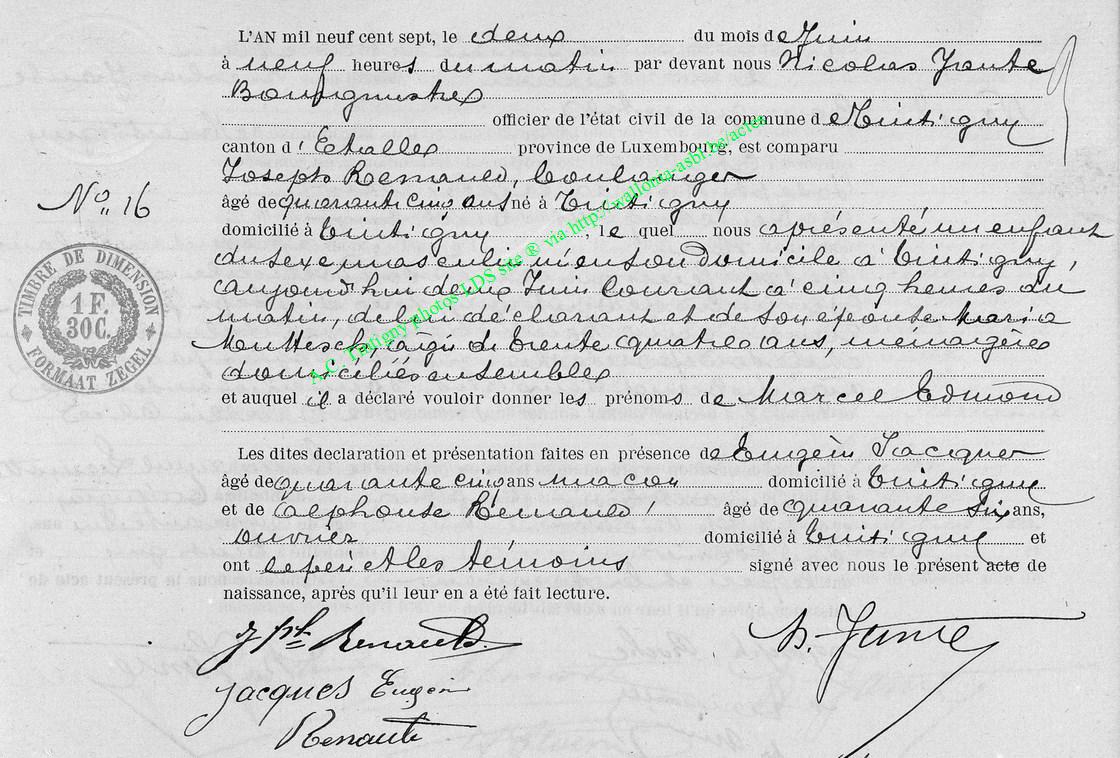 L'AN mil neuf cent sept, le deux du mois de Juin
à neuf heures du matin par devant nous Nicolas
Bourgmestre
officier de l'état civil de la commune de Tintigny
canton d'Etalle province de Luxembourg, est comparu
Joseph Renauld, boulanger
N° 16
âgé de quarante cinq ans né à Tintigny
domicilié à Tintigny, le quel nous a présenté un enfant
du sexe masculin né en son domicile à Tintigny,
aujourd'hui deux Juin courant à cinq heures du
matin, de lui déclarant et de son épouse Maria
âgée de trente quatre ans, ménagère
domiciliés ensemble
et auquel il a déclaré vouloir donner les prénoms de Marcel Edmond
Les dites declaration et présentation faites en présence de Eugène Jacques
âgé de quarante cinq ans maçon domicilié à Tintigny
et de Alphonse Renauld âgé de quarante six ans,
ouvrier domicilié à Tintigny et
ont le père et les témoins signé avec nous le présent acte de
naissance, après qu'il leur en a été fait lecture.
Jph Renauld
N.
Jacques Eugène
Renauld
TIMBRE DE DIMENSION
1 F.
30C.
FORMAAT ZEGEL
A.C. Tintigny photos LDS site ® via http://wallonia-asbl.be/actes